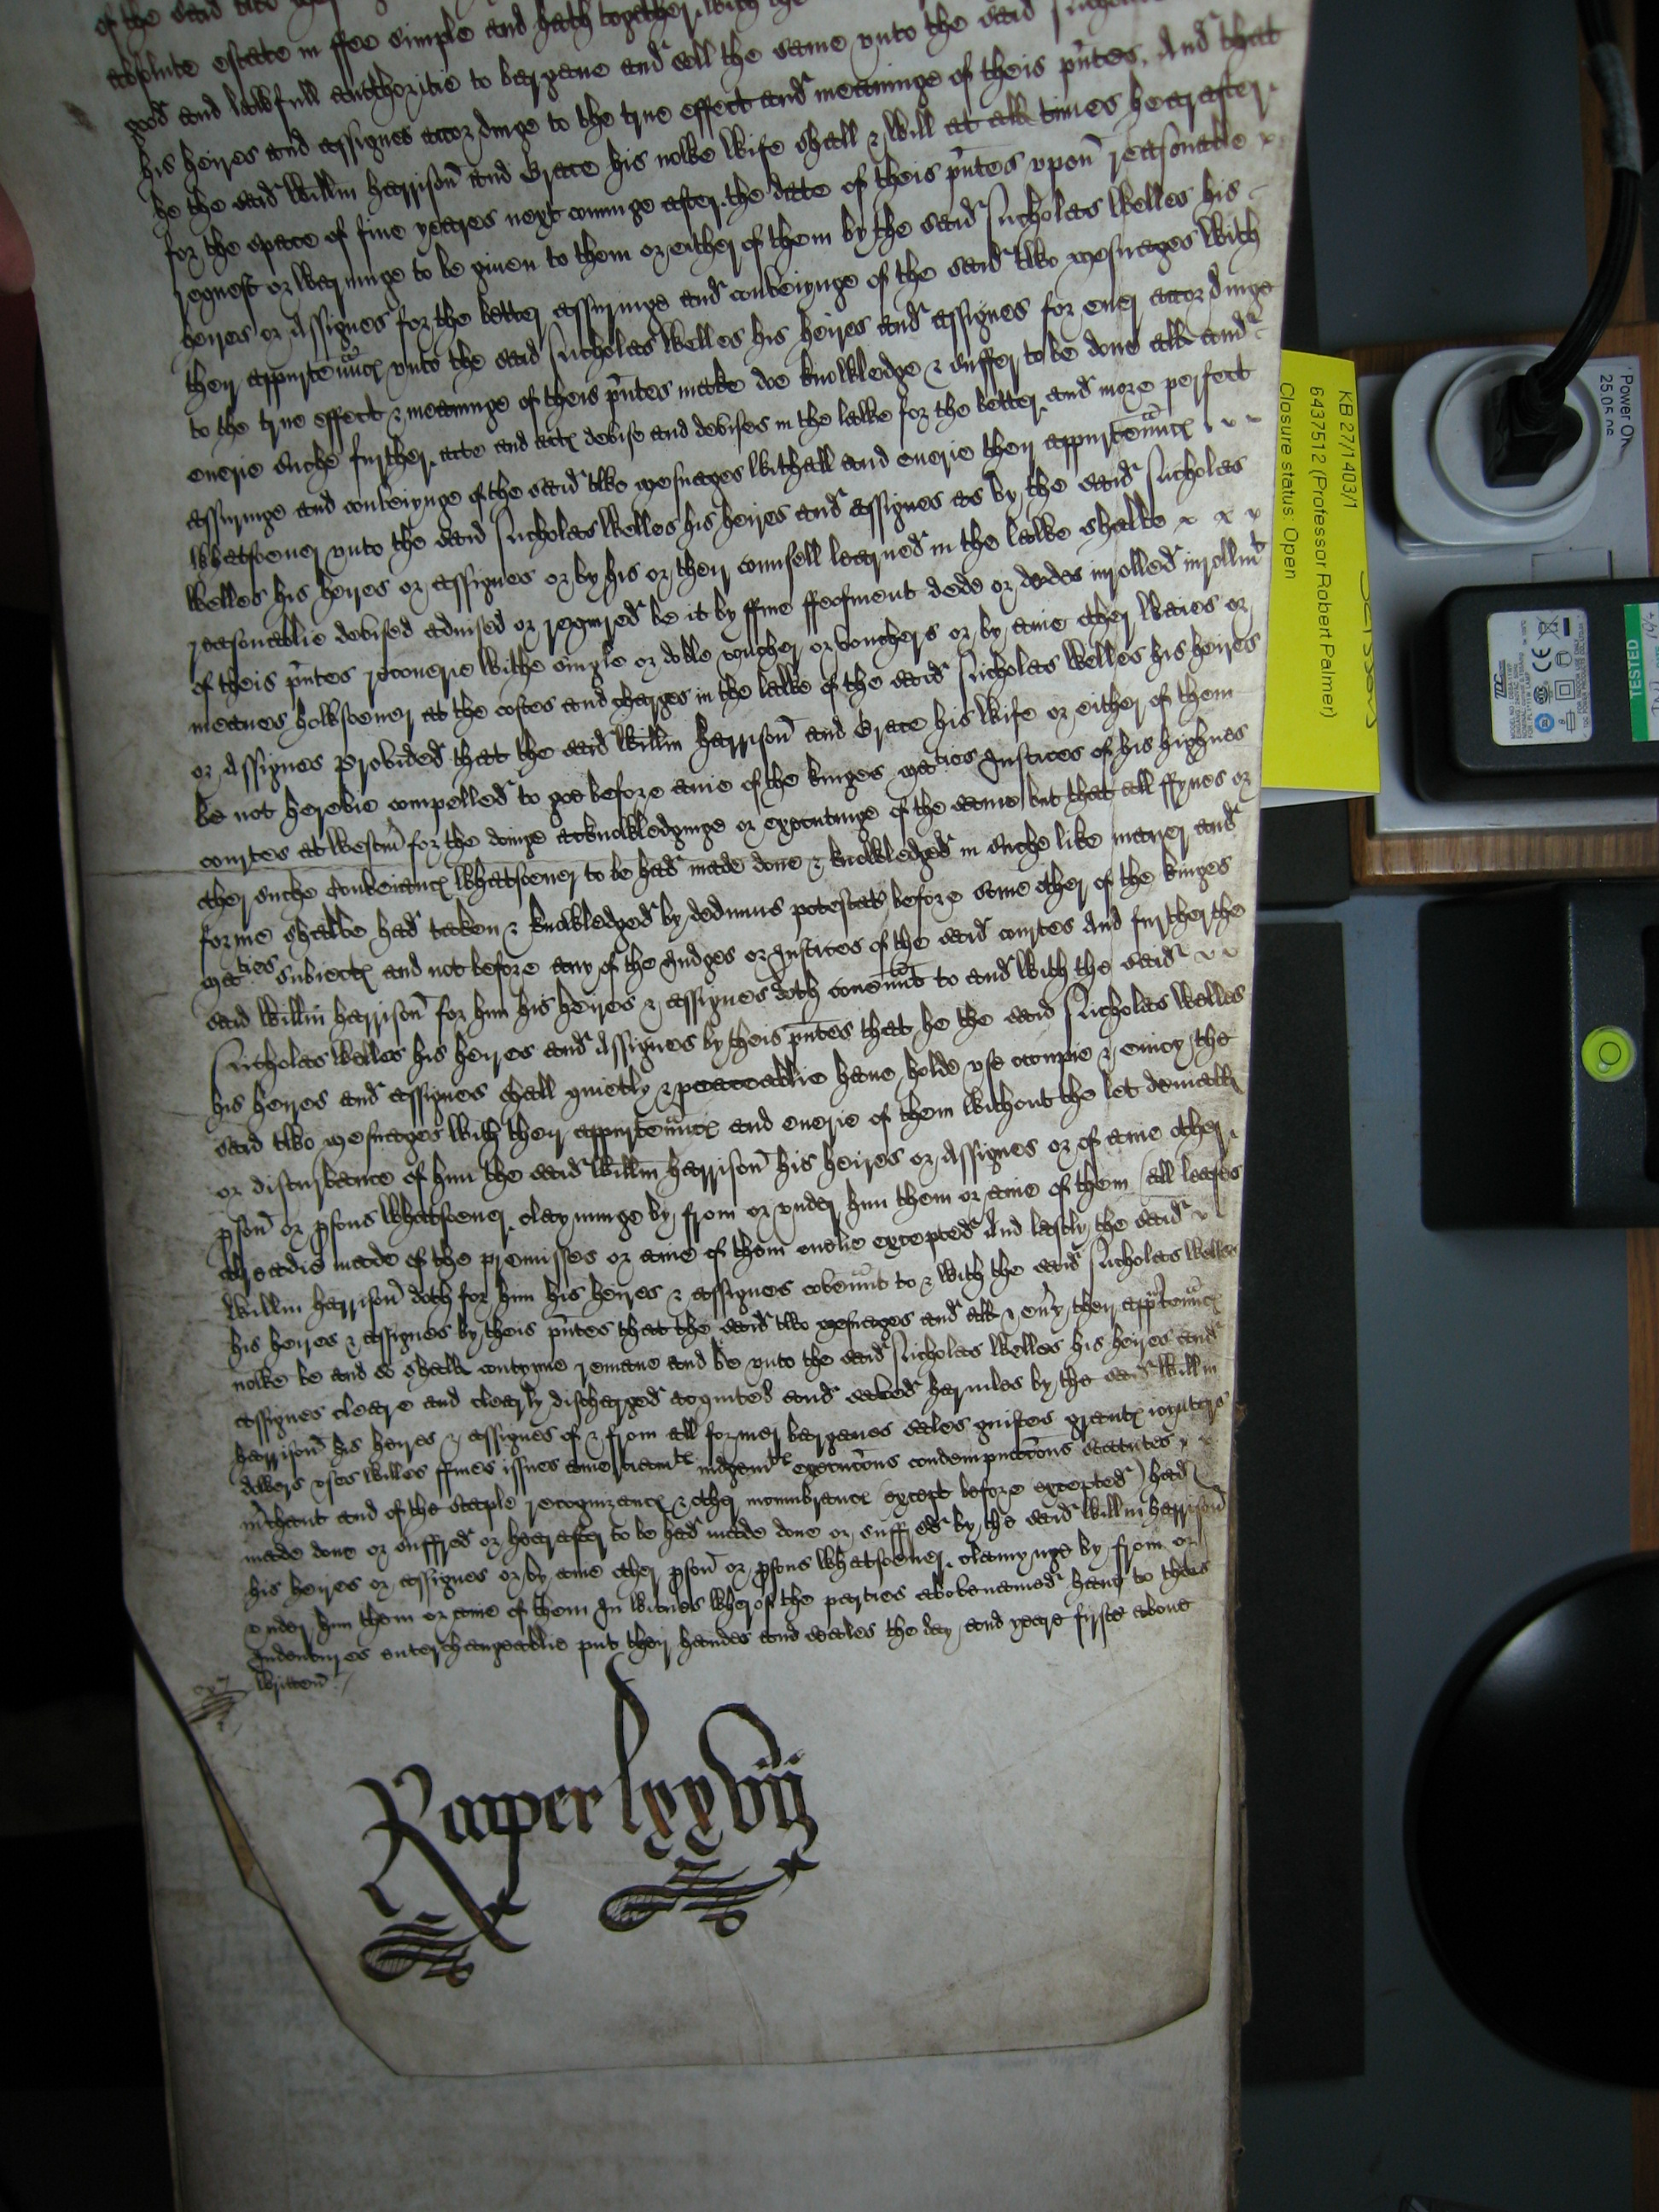 of the said two
absolute estate in ffee simple and hath together with the
good and lawfull aucthoritie to bargane and sell the same vnto the said Nicholas
his heires and assignes accordinge to the true effect and meaninge of theis pñtes. And that
he the said Willm̃ Harrison and Grace his nowe wife shall & will at all times hearafter
for the space of fiue yeares next cominge after the date of theis pñtes vpon reasonable
request or warninge to be giuen to them or either of them by the said Nicholas Welles his
heires or Assignes for the better assuringe and conveiynge of the said two mesuages with
their appurteññc vnto the said Nicholas Welles his heires and assignes for euer accordinge
to the true effect & meaninge of theis pñtes make doe knowledge & suffer to be done all and
euerie suche further acte and act devise and devises in the lawe for the better and more perfect
assuringe and conveiynge of the said two mesuages withall and euerie their appurteññc
whatsoeuer vnto the said Nicholas Welles his heires and assignes as by the said Nicholas
Welles his heires or assignes or by his or their counsell learned in the lawe shalbe
reasonablie devised advised or required be it by ffine ffeofment dede or dedes inrolled inrollm̃t
of theis pñtes recouerie withe single or doble voucher or vouchers or by anie other waies or
meanes howsoeuer at the costes and charges in the lawe of the said Nicholas Welles his heires
or Assignes Provided that the said Willm̃ Harrison and Grace his wife or either of them
be not herebie compelled to goe before anie of the kinges maties Justices of his highnes
courtes at Westm̃ for the doinge acknowledginge or executinge of the same but that all ffynes or
other suche conveianc whatsoeuer to be had made done & knowledged in suche like maner and
forme shalbe had taken & knowledged by dedimus potestat before some other of the kinges
maties subiect and not before any of the Judges or Justices of the said courtes And further the
said Willm̃ Harrison for him his heires & assignes doth couenñt to and with the said
Nicholas Welles his heires and Assignes by theis pñtes that he the said Nicholas Welles
his heires and assignes shall quietly & peaceablie haue holde vse occupie & enioy the
said two mesuages with their appurteññc and euerie of them without the let deniall
or disturbance of him the said Willm̃ Harrison his heires or Assignes or of anie other
pson or psons whatsoeuer clayminge by from or vnder him them or anie of them (all leases
alreadie made of the premisses or anie of them onelie excepted And lastly the said
Willm̃ Harrison doth for him his heires & assignes covenñt to & with the said Nicholas Welles
his heires & assignes by theis pñtes that the said two mesuages and all & eu'y their app'teññc
nowe be and so shall contynue remane and be vnto the said Nicholas Welles his heires and
assignes cleare and clearly discharged acquited and saved harmles by the said Willm̃
Harrison his heires & assignes of & from all former barganes sales guiftes grant ioyntures
dowers vses willes ffines issues amerciamtℯ iudgemtℯ execucõns condempnacõns statutes
m'chant and of the staple recognizanc & other incumbranc (except before excepted) had
made done or suffred or hearafter to be had made done or suffred by the said Willm̃ Harrison
his heires or assignes or by anie other pson or psons whatsoeuer claymynge by from or
vnder him them or anie of them In witnes wherof the parties abovenamed haue to theis
Indentures enterchangeablie put their handes and seales the day and yeare firste aboue
written
Raper lxxviij
KB 27/1403/1
6437512 (Professor Robert Palmer)
Closure status: Open
Power On
25.05.06
TESTED